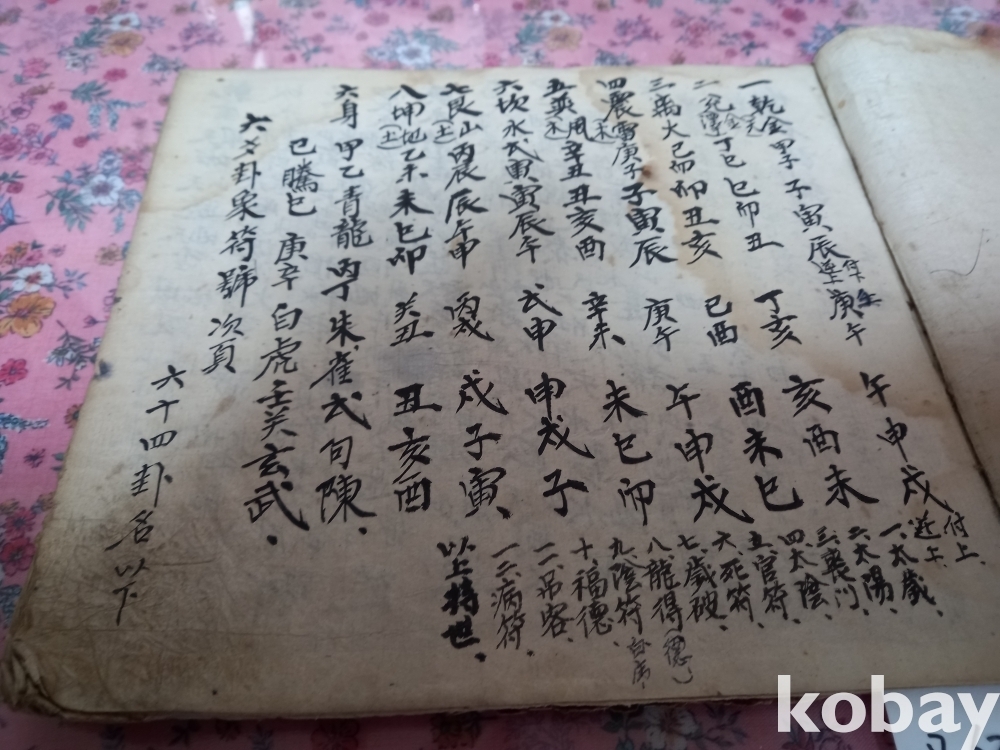 一乾金甲子子寅辰 庚午 午申戌
二兌金丁巳巳卯丑 丁亥 亥酉未
三离火己卯卯丑亥 己酉 酉未巳
四震雷庚子子寅辰 庚午 午申戌
五巽風辛丑丑亥酉 辛未 未巳卯
六坎水戊寅寅辰午 戊申 申戌子
七艮山(土)丙辰辰午申 丙戌 戌子寅
八坤地(土)乙未未巳卯 癸丑 丑亥酉
付上
一、太歲、
二、太陽、
三、喪門、
四、太陰、
五、官符、
六、死符、
七、歲破、
八、龍得(德)
九、陰符 白虎
十、福德、
一一、吊客、
一二、病符、
以上持世、
六身 甲乙青龍丙丁朱雀戊句陳、
己騰巳 庚辛白虎壬癸玄武、
六爻卦象符號次頁
六十四卦名以下
kobay